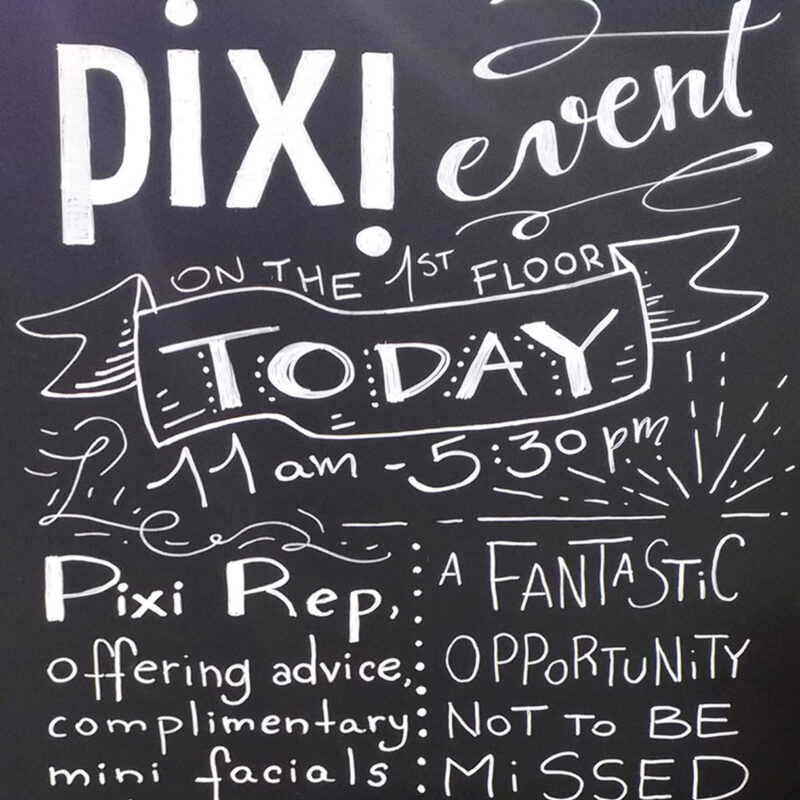 pixi event
ON THE 1ST FLOOR
TODAY
11 am - 5:30 pm
Pixi Rep,
offering advice,
complimentary
mini facials
A FANTASTiC
OPPORTUNiTY
NOT TO BE
MiSSED